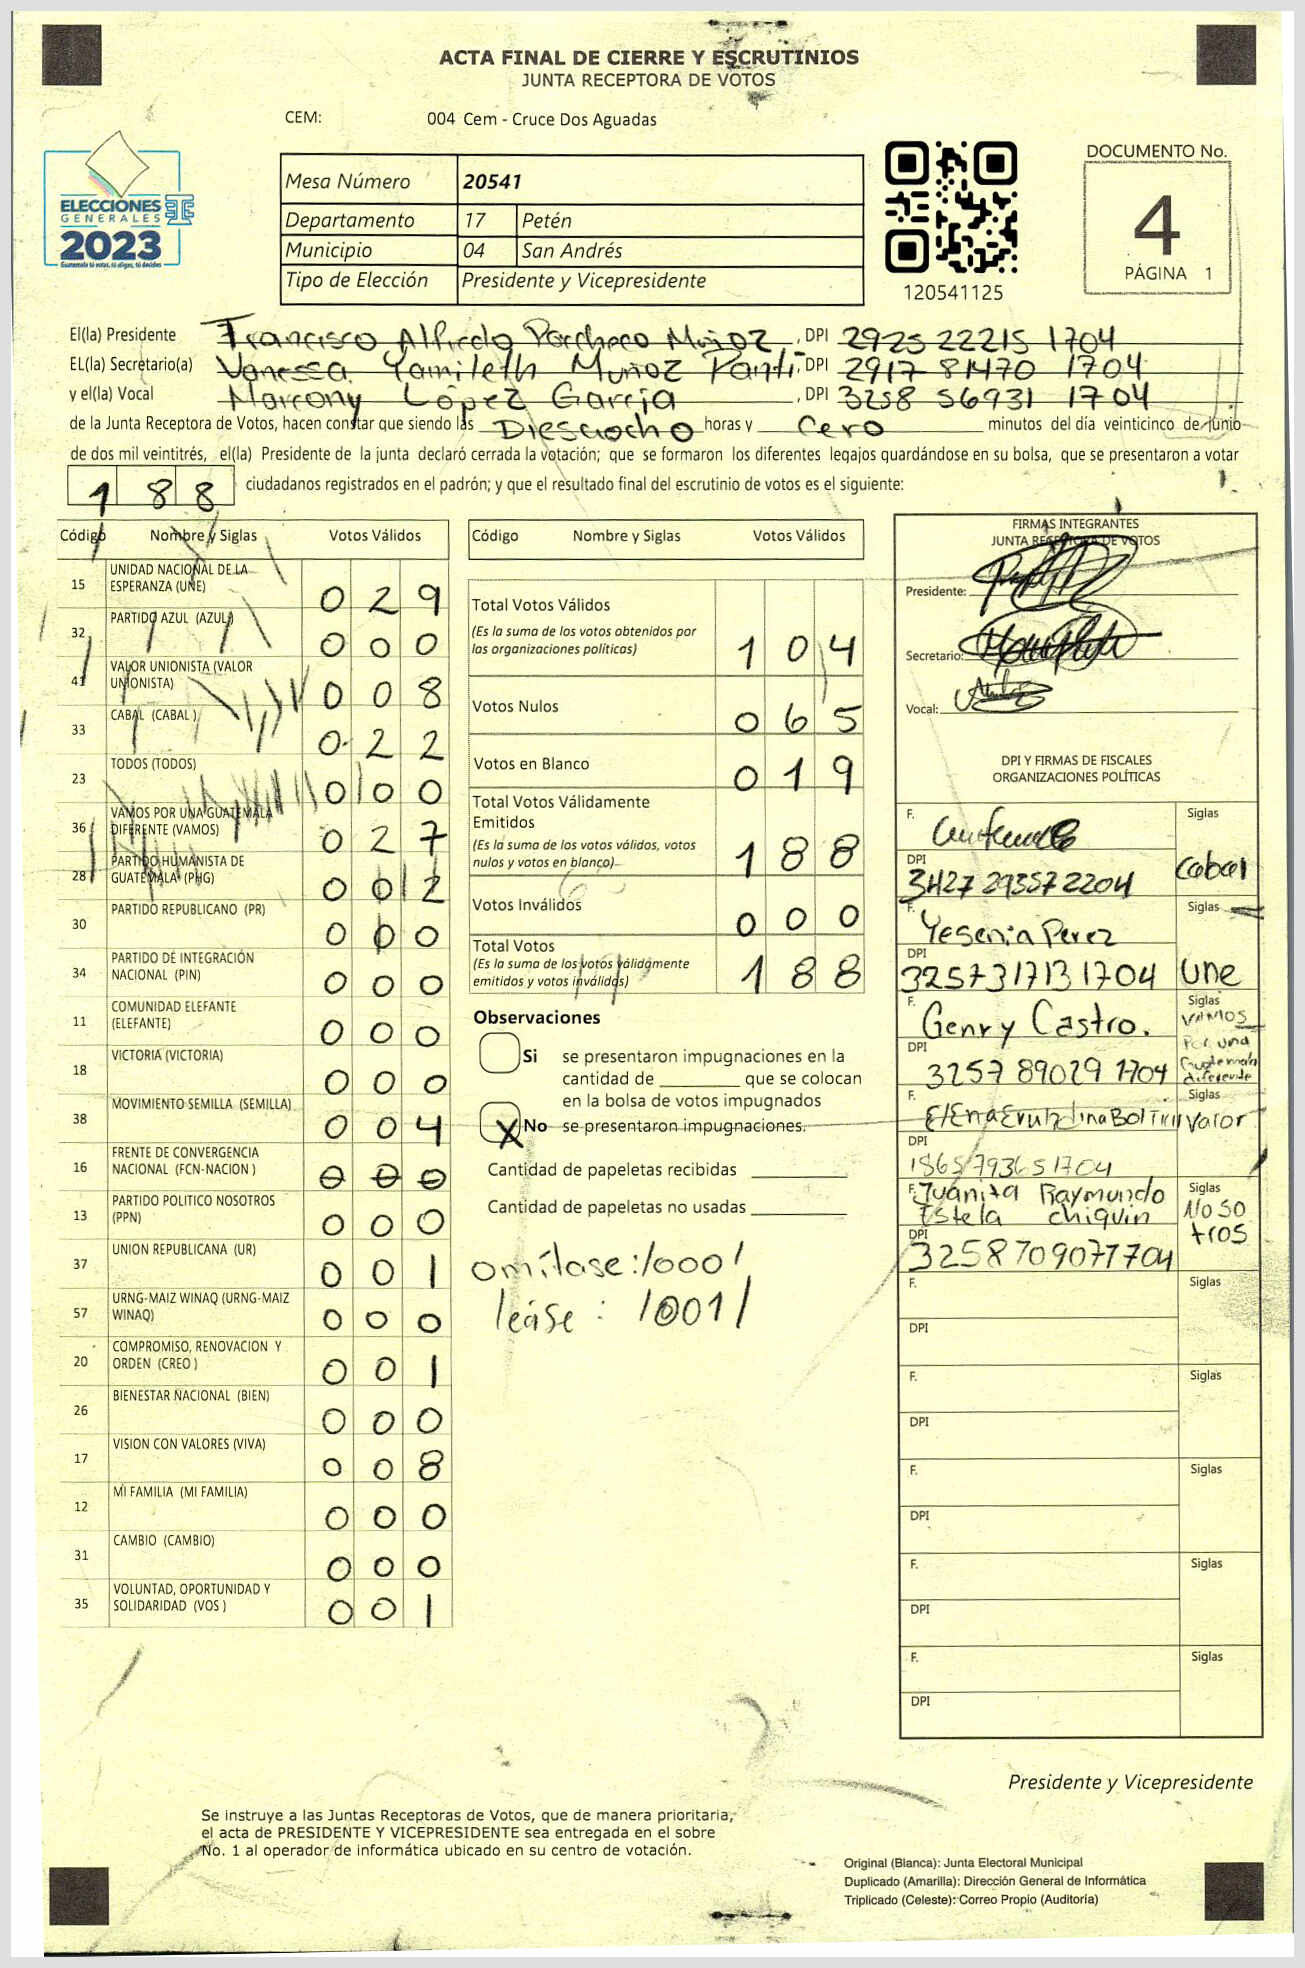 ACTA FINAL DE CIERRE Y ESCRUTINIOS
JUNTA RECEPTORA DE VOTOS
CEM: 004 Cem - Cruce Dos Aguadas
ELECCIONES
GENERALES
2023
Guatemala tú votas, tú eliges, tú decides
Mesa Número 20541
Departamento 17 Petén
Municipio 04 San Andrés
Tipo de Elección Presidente y Vicepresidente
120541125
DOCUMENTO No.
4
PÁGINA 1
El(la) Presidente Francisco Alfredo Pacheco Muñoz, DPI 2925 22215 1704
EL(la) Secretario(a) Vanessa Yamileth Muñoz Panti, DPI 2917 81470 1704
y el(la) Vocal Marcony López García, DPI 3258 56931 1704
de la Junta Receptora de Votos, hacen constar que siendo las Diesciocho horas y Cero minutos del día veinticinco de Junio
de dos mil veintitrés, el(la) Presidente de la junta declaró cerrada la votación; que se formaron los diferentes legajos guardándose en su bolsa, que se presentaron a votar
188 ciudadanos registrados en el padrón; y que el resultado final del escrutinio de votos es el siguiente:
Código Nombre y Siglas Votos Válidos
15 UNIDAD NACIONAL DE LA
ESPERANZA (UNE) 029
32 PARTIDO AZUL (AZUL) 000
41 VALOR UNIONISTA (VALOR
UNIONISTA) 008
33 CABAL (CABAL) 022
23 TODOS (TODOS) 000
36 VAMOS POR UNA GUATEMALA
DIFERENTE (VAMOS) 027
28 PARTIDO HUMANISTA DE
GUATEMALA (PHG) 002
30 PARTIDO REPUBLICANO (PR) 000
34 PARTIDO DE INTEGRACIÓN
NACIONAL (PIN) 000
11 COMUNIDAD ELEFANTE
(ELEFANTE) 000
18 VICTORIA (VICTORIA) 000
38 MOVIMIENTO SEMILLA (SEMILLA) 004
16 FRENTE DE CONVERGENCIA
NACIONAL (FCN-NACION) 000
13 PARTIDO POLITICO NOSOTROS
(PPN) 000
37 UNION REPUBLICANA (UR) 001
57 URNG-MAIZ WINAQ (URNG-MAIZ
WINAQ) 000
20 COMPROMISO, RENOVACION Y
ORDEN (CREO) 001
26 BIENESTAR NACIONAL (BIEN) 000
17 VISION CON VALORES (VIVA) 008
12 MI FAMILIA (MI FAMILIA) 000
31 CAMBIO (CAMBIO) 000
35 VOLUNTAD, OPORTUNIDAD Y
SOLIDARIDAD (VOS) 001
Código Nombre y Siglas Votos Válidos
Total Votos Válidos
(Es la suma de los votos obtenidos por
las organizaciones políticas) 104
Votos Nulos 065
Votos en Blanco 019
Total Votos Válidamente
Emitidos
(Es la suma de los votos válidos, votos
nulos y votos en blanco) 188
Votos Inválidos 000
Total Votos
(Es la suma de los votos válidamente
emitidos y votos inválidos) 188
Observaciones
Si se presentaron impugnaciones en la
cantidad de ________ que se colocan
en la bolsa de votos impugnados
X No se presentaron impugnaciones.
Cantidad de papeletas recibidas
Cantidad de papeletas no usadas
omítase: /000/
léase: /001/
FIRMAS INTEGRANTES
JUNTA RECEPTORA DE VOTOS
Presidente:
Secretario:
Vocal:
DPI Y FIRMAS DE FISCALES
ORGANIZACIONES POLÍTICAS
F. Siglas
DPI 3427 29357 2204 Cabal
F. Yesenia Perez Siglas
DPI 3257317131704 Une
F. Genry Castro. Siglas VAMOS
Por una
Guatemala
DPI 3257 89029 1704 diferente
F. Siglas Valor
DPI 1865793651704
F. Juanita Raymundo Siglas
Estela Chiquin Noso
tros
DPI 3258709071704
F. Siglas
DPI
F. Siglas
DPI
F. Siglas
DPI
F. Siglas
DPI
F. Siglas
DPI
Presidente y Vicepresidente
Se instruye a las Juntas Receptoras de Votos, que de manera prioritaria,
el acta de PRESIDENTE Y VICEPRESIDENTE sea entregada en el sobre
No. 1 al operador de informática ubicado en su centro de votación.
Original (Blanca): Junta Electoral Municipal
Duplicado (Amarilla): Dirección General de Informática
Triplicado (Celeste): Correo Propio (Auditoría)